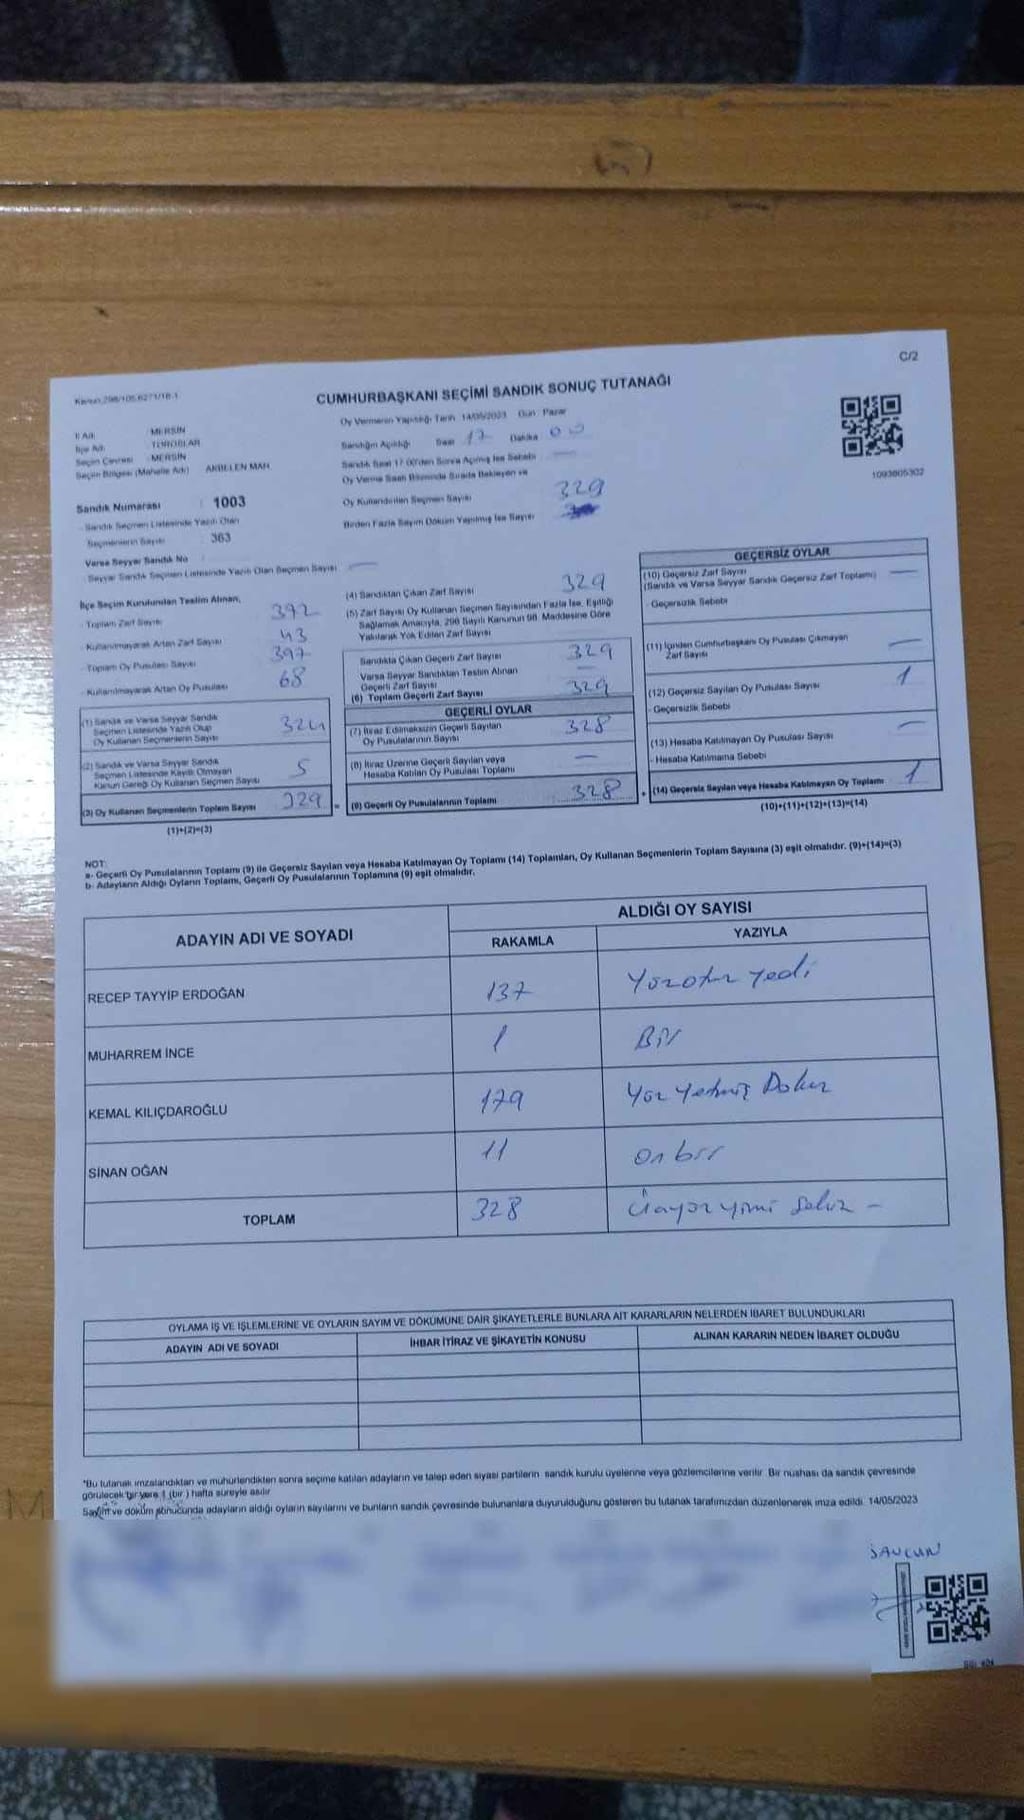 C/2
Kanun 298/105,6271/18-1
CUMHURBAŞKANI SEÇİMİ SANDIK SONUÇ TUTANAĞI
Oy Vermenin Yapıldığı Tarih 14/05/2023 Gün : Pazar
İl Adı : MERSİN
İlçe Adı : TOROSLAR
Seçim Çevresi : MERSİN
Seçim Bölgesi (Mahalle Adı) AKBELEN MAH
Sandığın Açıldığı Saat 17 Dakika 00
Sandık Saat 17.00'den Sonra Açılmış İse Sebebi —
Oy Verme Saati Bitiminde Sırada Bekleyen ve
Oy Kullandırılan Seçmen Sayısı 329
Birden Fazla Sayım Döküm Yapılmış İse Sayısı
1093805302
Sandık Numarası : 1003
- Sandık Seçmen Listesinde Yazılı Olan
Seçmenlerin Sayısı : 363
Varsa Seyyar Sandık No :
- Seyyar Sandık Seçmen Listesinde Yazılı Olan Seçmen Sayısı —
İlçe Seçim Kurulundan Teslim Alınan,
- Toplam Zarf Sayısı 392
- Kullanılmayarak Artan Zarf Sayısı 43
- Toplam Oy Pusulası Sayısı 397
- Kullanılmayarak Artan Oy Pusulası 68
(1) Sandık ve Varsa Seyyar Sandık
Seçmen Listesinde Yazılı Olup
Oy Kullanan Seçmenlerin Sayısı 324
(2) Sandık ve Varsa Seyyar Sandık
Seçmen Listesinde Kayıtlı Olmayan
Kanun Gereği Oy Kullanan Seçmen Sayısı 5
(3) Oy Kullanan Seçmenlerin Toplam Sayısı 329 =
(1)+(2)=(3)
(4) Sandıktan Çıkan Zarf Sayısı 329
(5) Zarf Sayısı Oy Kullanan Seçmen Sayısından Fazla İse, Eşitliği
Sağlamak Amacıyla, 298 Sayılı Kanunun 98. Maddesine Göre
Yakılarak Yok Edilen Zarf Sayısı
Sandıkta Çıkan Geçerli Zarf Sayısı 329
Varsa Seyyar Sandıktan Teslim Alınan
Geçerli Zarf Sayısı —
(6) Toplam Geçerli Zarf Sayısı 329
GEÇERLİ OYLAR
(7) İtiraz Edilmeksizin Geçerli Sayılan
Oy Pusulalarının Sayısı 328
(8) İtiraz Üzerine Geçerli Sayılan veya
Hesaba Katılan Oy Pusulası Toplamı —
(9) Geçerli Oy Pusulalarının Toplamı 328 +
GEÇERSİZ OYLAR
(10) Geçersiz Zarf Sayısı
(Sandık ve Varsa Seyyar Sandık Geçersiz Zarf Toplamı) —
- Geçersizlik Sebebi
(11) İçinden Cumhurbaşkanı Oy Pusulası Çıkmayan
Zarf Sayısı —
(12) Geçersiz Sayılan Oy Pusulası Sayısı 1
- Geçersizlik Sebebi
(13) Hesaba Katılmayan Oy Pusulası Sayısı —
- Hesaba Katılmama Sebebi
(14) Geçersiz Sayılan veya Hesaba Katılmayan Oy Toplamı 1
(10)+(11)+(12)+(13)=(14)
NOT:
a- Geçerli Oy Pusulalarının Toplamı (9) ile Geçersiz Sayılan veya Hesaba Katılmayan Oy Toplamı (14) Toplamları, Oy Kullanan Seçmenlerin Toplam Sayısına (3) eşit olmalıdır. (9)+(14)=(3)
b- Adayların Aldığı Oyların Toplamı, Geçerli Oy Pusulalarının Toplamına (9) eşit olmalıdır.
ADAYIN ADI VE SOYADI
ALDIĞI OY SAYISI
RAKAMLA YAZIYLA
RECEP TAYYİP ERDOĞAN 137 Yüzotuz yedi
MUHARREM İNCE 1 Bir
KEMAL KILIÇDAROĞLU 179 Yüz Yetmiş Dokuz
SİNAN OĞAN 11 Onbir
TOPLAM 328 Üçyüz yirmi Sekiz —
OYLAMA İŞ VE İŞLEMLERİNE VE OYLARIN SAYIM VE DÖKÜMÜNE DAİR ŞİKAYETLERLE BUNLARA AİT KARARLARIN NELERDEN İBARET BULUNDUKLARI
ADAYIN ADI VE SOYADI İHBAR İTİRAZ VE ŞİKAYETİN KONUSU ALINAN KARARIN NEDEN İBARET OLDUĞU
*Bu tutanak imzalandıktan ve mühürlendikten sonra seçime katılan adayların ve talep eden siyasi partilerin sandık kurulu üyelerine veya gözlemcilerine verilir. Bir nüshası da sandık çevresinde
görülecek bir yere 1 (bir) hafta süreyle asılır
Sayım ve döküm sonucunda adayların aldığı oyların sayılarını ve bunların sandık çevresinde bulunanlara duyurulduğunu gösteren bu tutanak tarafımızdan düzenlenerek imza edildi. 14/05/2023